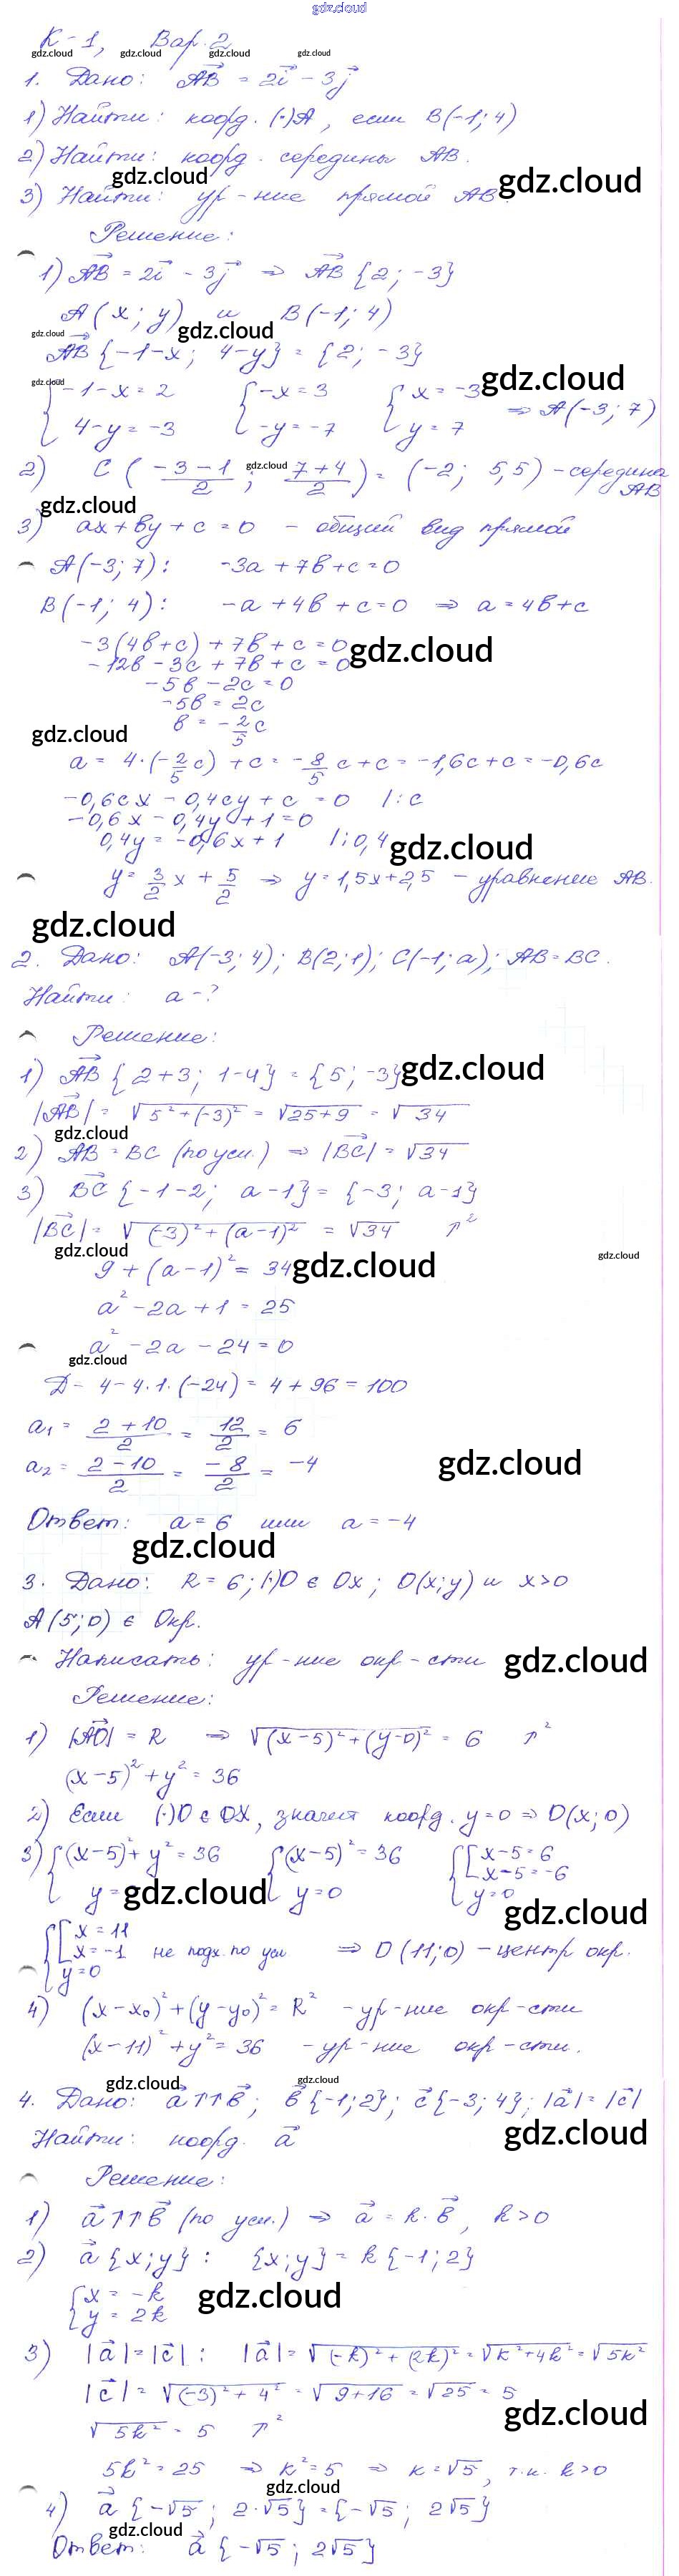 gdz.cloud
К-1, Вар. 2
gdz.cloud gdz.cloud gdz.cloud gdz.cloud
1. Дано: AB = 2i - 3j
1) Найти: коорд. (·)A, если B(-1; 4)
2) Найти: коорд. середины AB.
gdz.cloud gdz.cloud
3) Найти: ур-ние прямой AB.
Решение:
1) AB = 2i - 3j ⇒ AB {2; -3}
A(x; y) и B(-1; 4)
gdz.cloud gdz.cloud
AB {-1-x; 4-y} = {2; -3}
gdz.cloud gdz.cloud
{-1-x = 2 {-x = 3 {x = -3
4-y = -3 -y = -7 y = 7 ⇒ A(-3; 7)
2) C (-3-1/2; 7+4/2) = (-2; 5,5) - середина AB
gdz.cloud
gdz.cloud
3) ax + by + c = 0 - общий вид прямой
A(-3; 7): -3a + 7b + c = 0
B(-1; 4): -a + 4b + c = 0 ⇒ a = 4b + c
-3(4b+c) + 7b + c = 0
gdz.cloud
-12b - 3c + 7b + c = 0
-5b - 2c = 0
-5b = 2c
b = -2/5 c
gdz.cloud
a = 4·(-2/5 c) + c = -8/5 c + c = -1,6c + c = -0,6c
-0,6cx - 0,4cy + c = 0 /:c
-0,6x - 0,4y + 1 = 0
0,4y = -0,6x + 1 /:0,4
gdz.cloud
y = 3/2 x + 5/2 ⇒ y = 1,5x + 2,5 - уравнение AB.
gdz.cloud
2. Дано: A(-3; 4); B(2; 1); C(-1; a); AB = BC.
Найти: a - ?
Решение:
1) AB {2+3; 1-4} = {5; -3}
gdz.cloud
|AB| = √5²+(-3)² = √25+9 = √34
gdz.cloud
2) AB = BC (по усл.) ⇒ |BC| = √34
3) BC {-1-2; a-1} = {-3; a-1}
|BC| = √(-3)²+(a-1)² = √34 ↑²
gdz.cloud gdz.cloud
9 + (a-1)² = 34
gdz.cloud
a² - 2a + 1 = 25
a² - 2a - 24 = 0
gdz.cloud
Д = 4 - 4·1·(-24) = 4 + 96 = 100
a₁ = 2+10/2 = 12/2 = 6
a₂ = 2-10/2 = -8/2 = -4
gdz.cloud
Ответ: a = 6 или a = -4
gdz.cloud
3. Дано: R = 6; (·)O ∈ Ox; O(x; y) и x > 0
A(5; 0) ∈ Окр.
Написать: ур-ние окр-сти
gdz.cloud
Решение:
1) |AO| = R ⇒ √(x-5)²+(y-0)² = 6 ↑²
(x-5)² + y² = 36
2) Если (·)O ∈ OX, значит коорд. y = 0 ⇒ O(x; 0)
3) {(x-5)² + y² = 36 {(x-5)² = 36 {[x-5 = 6
x-5 = -6
y = y = 0 y = 0
gdz.cloud gdz.cloud
{[x = 11
x = -1 не подх. по усл ⇒ O(11; 0) - центр окр.
y = 0
4) (x-x₀)² + (y-y₀)² = R² - ур-ние окр-сти
(x-11)² + y² = 36 - ур-ние окр-сти.
gdz.cloud gdz.cloud
4. Дано: a↑↑b; b{-1; 2}; c{-3; 4}; |a| = |c|
gdz.cloud
Найти: коорд. a
Решение:
1) a↑↑b (по усл.) ⇒ a = k·b, k > 0
2) a{x; y}: {x; y} = k{-1; 2}
{x = -k
y = 2k
gdz.cloud
3) |a| = |c|: |a| = √(-k)²+(2k)² = √k²+4k² = √5k²
|c| = √(-3)²+4² = √9+16 = √25 = 5
gdz.cloud
√5k² = 5 ↑²
5k² = 25 ⇒ k² = 5 ⇒ k = √5, т.к. k > 0
gdz.cloud
4) a{-√5; 2·√5} = {-√5; 2√5}
gdz.cloud
Ответ: a{-√5; 2√5}